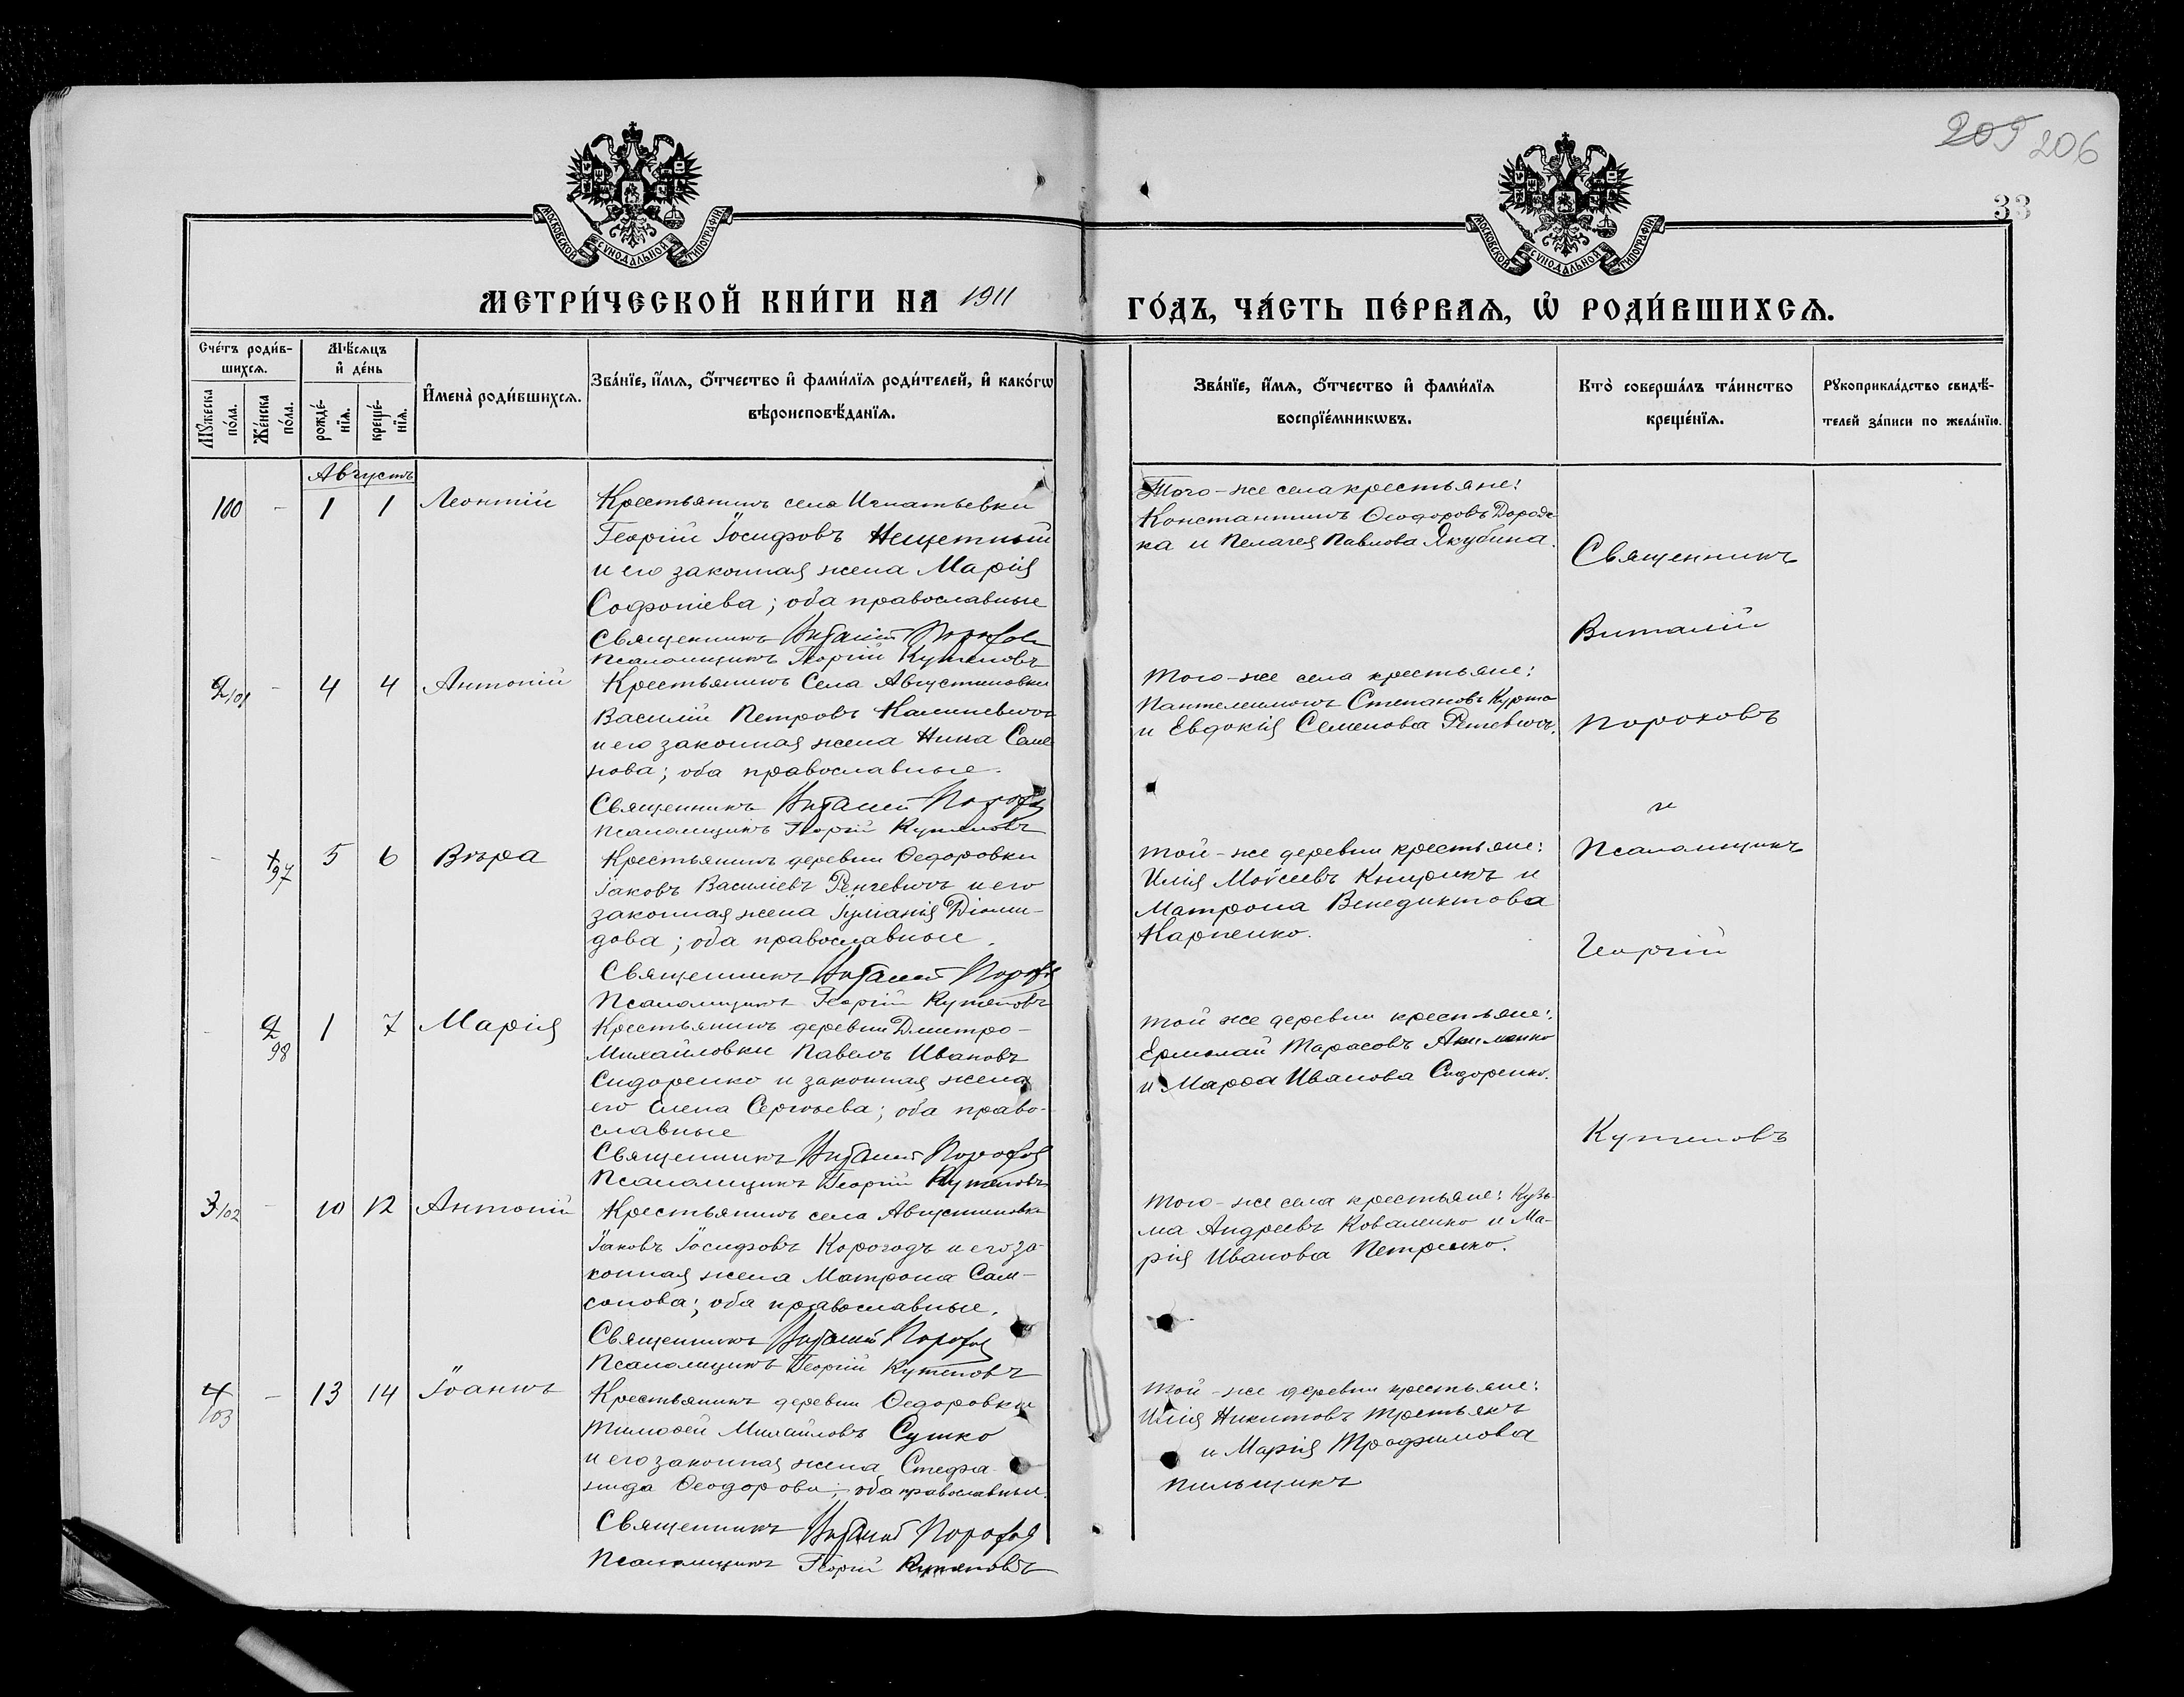 209 206
33
МОСКОВСКОЙ СУНОДАЛЬНОЙ ТИПОГРАФІИ
МОСКОВСКОЙ СУНОДАЛЬНОЙ ТИПОГРАФІИ
МЕТРИ́ЧЕСКОЙ КНИ́ГИ НА 1911
ГО́ДЪ, ЧА́СТЬ ПЕ́РВАѦ, Ѡ҆ РОДИ́ВШИХСѦ.
Сче́тъ роди́в-
шихсѧ.
Мꙋжеска по́ла.
Же́нска по́ла.
Мѣ́сѧцъ
и҆ де́нь
рожде́-
нїѧ.
креще́-
нїѧ.
И҆мена̀ роди́вшихсѧ.
Зва́нїе, и҆́мѧ, ѻ҆́тчество и҆ фами́лїѧ роди́телей, и҆ како́гѡ
вѣроисповѣ́данїѧ.
Зва́нїе, и҆́мѧ, ѻ҆́тчество и҆ фами́лїѧ
воспрїе́мникѡвъ.
Кто̀ соверша́лъ та́инство
креще́нїѧ.
Рꙋкоприкла́дство свидѣ́-
телей за́писи по жела́нїю.
Августъ
100 - 1 1 Леонтій
Крестьянинъ села Игнатьевки
Георгій Іосифовъ Нещетный
и его законная жена Марія
Софроніева; оба православные
Священникъ Виталій Пороховъ
Псаломщикъ Георгій Кутеповъ
Того-же села крестьяне:
Константинъ Ѳеодоровъ Дорош-
ка и Пелагея Павлова Якубина.
Священникъ
Виталій
Пороховъ
и
Псаломщикъ
Георгій
Кутеповъ
2/101 - 4 4 Антоній
Крестьянинъ Села Августиновки
Василій Петровъ Калиневичъ
и его законная жена Нина Семе
нова; оба православные.
Священникъ Виталій Пороховъ
Псаломщикъ Георгій Кутеповъ
Того-же села крестьяне:
Пантелеимонъ Степановъ Курто
и Евдокія Семенова Реневичъ.
- 1/97 5 6 Вѣра
Крестьянинъ деревни Ѳедоровки
Іаковъ Василіевъ Ренгевичъ и его
законная жена Іуліанія Діоми-
дова; оба православные.
Священникъ Виталій Пороховъ
Псаломщикъ Георгій Кутеповъ
Той-же деревни крестьяне:
Илія Моѵсеевъ Книрикъ и
Матрона Венедиктова
Карпенко.
- 2/98 1 7 Марія
Крестьянинъ деревни Дмитро-
Михайловки Павелъ Ивановъ
Сидоренко и законная жена
его Елена Сергѣева; оба право-
славные
Священникъ Виталій Пороховъ
Псаломщикъ Георгій Кутеповъ
Той же деревни крестьяне:
Ермолай Тарасовъ Акименко
и Марѳа Иванова Сидоренко.
3/102 - 10 12 Антоній
Крестьянинъ села Августиновки
Іаковъ Іосифовъ Корогодъ и его за-
конная жена Матрона Сам-
сонова; оба православные.
Священникъ Виталій Пороховъ
Псаломщикъ Георгій Кутеповъ
Того-же села крестьяне: Кузь-
ма Андреевъ Коваленко и Ма-
рія Иванова Петренко.
4/103 - 13 14 Іоаннъ
Крестьянинъ деревни Ѳедоровки
Тимоѳей Михайловъ Сушко
и его законная жена Стефа-
нида Ѳеодорова; оба православные.
Священникъ Виталій Пороховъ
Псаломщикъ Георгій Кутеповъ
Той-же деревни крестьяне:
Илія Никитовъ Третьякъ
и Марія Трофимова
Пильщикъ